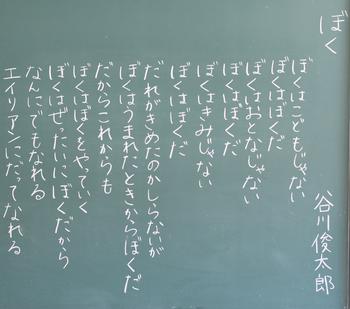 ぼく
谷川俊太郎
ぼくはこどもじゃない
ぼくはぼくだ
ぼくはおとなじゃない
ぼくはぼくだ
ぼくはきみじゃない
ぼくはぼくだ
だれがきめたのかしらないが
ぼくはうまれたときからぼくだ
だからこれからも
ぼくはぼくをやっていく
ぼくはぜったいにぼくだから
なんにでもなれる
エイリアンにだってなれる